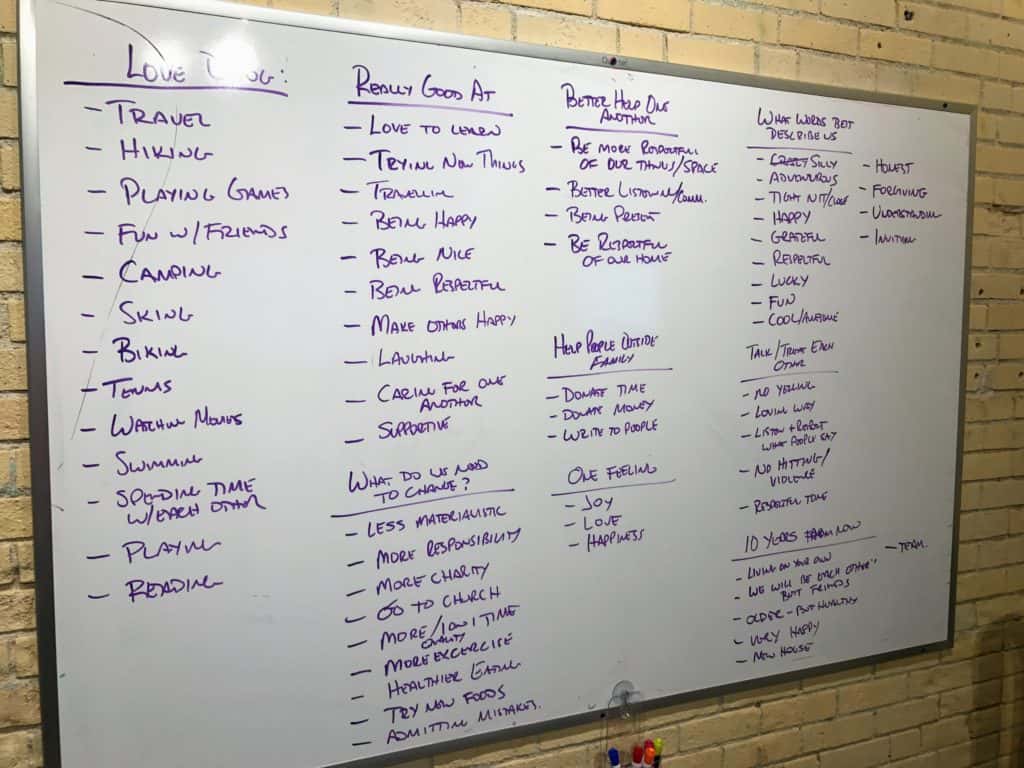 LOVE DOING:
- TRAVEL
- HIKING
- PLAYING GAMES
- FUN W/FRIENDS
- CAMPING
- SKING
- BIKING
- TENNIS
- WATCHIN MOVIES
- SWIMMING
- SPENDING TIME
W/EACH OTHER
- PLAYING
- READING
REALLY GOOD AT
- LOVE TO LEARN
- TRYING NEW THINGS
- TRAVELLIN
- BEING HAPPY
- BEING NICE
- BEING RESPECTFUL
- MAKE OTHERS HAPPY
- LAUGHING
- CARING FOR ONE
ANOTHER
- SUPPORTIVE
WHAT DO WE NEED
TO CHANGE?
- LESS MATERIALISTIC
- MORE RESPONSIBILITY
- MORE CHARITY
- GO TO CHURCH
- MORE/1 ON 1 TIME
QUALITY
- MORE EXCERCISE
- HEALTHIER EATING
- TRY NEW FOODS
- ADMITTIN MISTAKES.
BETTER HELP ONE
ANOTHER
- BE MORE RESPECTFUL
OF OUR THINGS/SPACE
- BETTER LISTENING/COMM.
- BEING PRESENT
- BE RESPECTFUL
OF OUR HOME
HELP PEOPLE OUTSIDE
FAMILY
- DONATE TIME
- DONATE MONEY
- WRITE TO PEOPLE
ONE FEELING
- JOY
- LOVE
- HAPPINESS
WHAT WORDS BEST
DESCRIBE US
- CRAZY SILLY
- ADVENTUROUS
- TIGHT NIT/CLOSE
- HAPPY
- GRATEFUL
- RESPECTFUL
- LUCKY
- FUN
- COOL/AWESOME
- HONEST
- FORGIVING
- UNDERSTANDING
- INVITING
TALK/TREAT EACH
OTHER
- NO YELLING
- LOVING WAY
- LISTEN + REPEAT
WHAT PEOPLE SAY
- NO HITTING/
VIOLENCE
- RESPECTFUL TONE
10 YEARS FROM NOW
- LIVING ON YOUR OWN
- WE WILL BE EACH OTHER'S
BEST FRIENDS
- OLDER - BUT HEALTHY
- VERY HAPPY
- NEW HOUSE
- TEAM